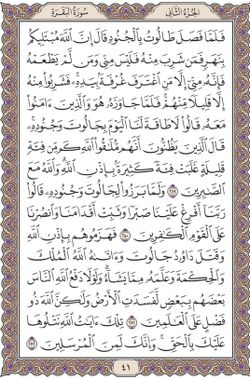 الجزء الثاني
سورة البقرة
فَلَمَّا فَصَلَ طَالُوتُ بِٱلْجُنُودِ قَالَ إِنَّ ٱللَّهَ مُبْتَلِيكُم
بِنَهَرٍ فَمَن شَرِبَ مِنْهُ فَلَيْسَ مِنِّى وَمَن لَّمْ يَطْعَمْهُ
فَإِنَّهُۥ مِنِّىٓ إِلَّا مَنِ ٱغْتَرَفَ غُرْفَةًۢ بِيَدِهِۦ ۚ فَشَرِبُوا۟ مِنْهُ
إِلَّا قَلِيلًا مِّنْهُمْ ۚ فَلَمَّا جَاوَزَهُۥ هُوَ وَٱلَّذِينَ ءَامَنُوا۟
مَعَهُۥ قَالُوا۟ لَا طَاقَةَ لَنَا ٱلْيَوْمَ بِجَالُوتَ وَجُنُودِهِۦ ۚ
قَالَ ٱلَّذِينَ يَظُنُّونَ أَنَّهُم مُّلَٰقُوا۟ ٱللَّهِ كَم مِّن فِئَةٍ
قَلِيلَةٍ غَلَبَتْ فِئَةً كَثِيرَةًۢ بِإِذْنِ ٱللَّهِ ۗ وَٱللَّهُ مَعَ
ٱلصَّٰبِرِينَ ٢٤٩ وَلَمَّا بَرَزُوا۟ لِجَالُوتَ وَجُنُودِهِۦ قَالُوا۟
رَبَّنَآ أَفْرِغْ عَلَيْنَا صَبْرًا وَثَبِّتْ أَقْدَامَنَا وَٱنصُرْنَا
عَلَى ٱلْقَوْمِ ٱلْكَٰفِرِينَ ٢٥٠ فَهَزَمُوهُم بِإِذْنِ ٱللَّهِ
وَقَتَلَ دَاوُۥدُ جَالُوتَ وَءَاتَىٰهُ ٱللَّهُ ٱلْمُلْكَ
وَٱلْحِكْمَةَ وَعَلَّمَهُۥ مِمَّا يَشَآءُ ۗ وَلَوْلَا دَفْعُ ٱللَّهِ ٱلنَّاسَ
بَعْضَهُم بِبَعْضٍ لَّفَسَدَتِ ٱلْأَرْضُ وَلَٰكِنَّ ٱللَّهَ ذُو
فَضْلٍ عَلَى ٱلْعَٰلَمِينَ ٢٥١ تِلْكَ ءَايَٰتُ ٱللَّهِ نَتْلُوهَا
عَلَيْكَ بِٱلْحَقِّ ۚ وَإِنَّكَ لَمِنَ ٱلْمُرْسَلِينَ ٢٥٢
٤١